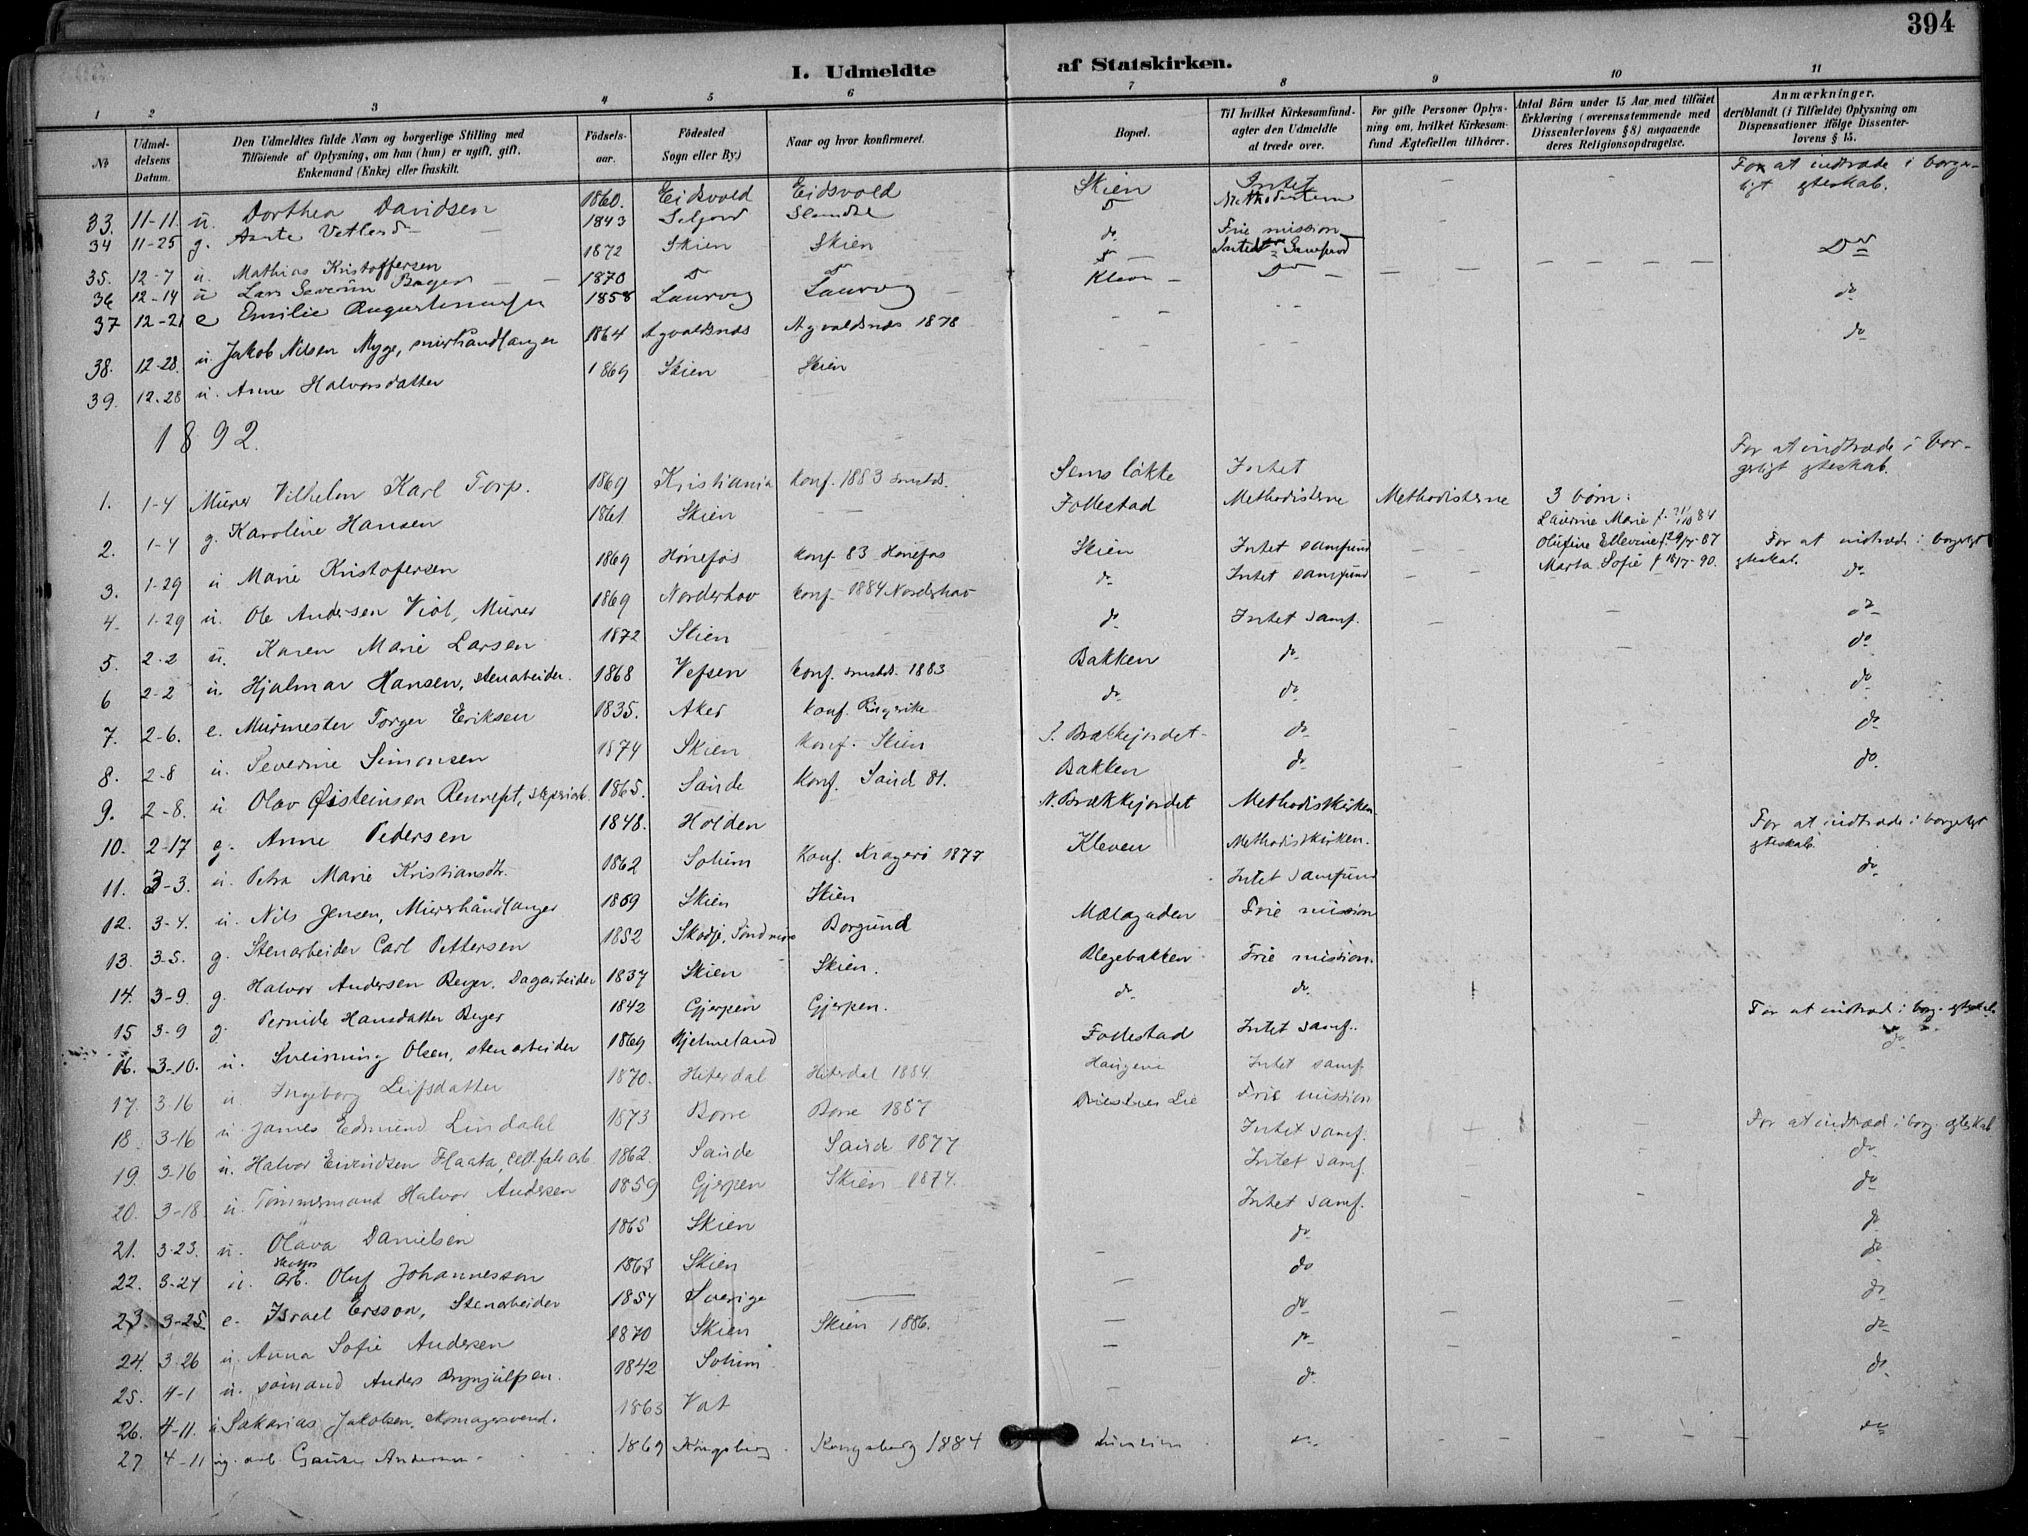 394
I. Udmeldte af Statskirken.
1 2 3 4 5 6 7 8 9 10 11
No
Udmeldelsens Datum.
Den Udmeldtes fulde Navn og borgerlige Stilling med
Tilføiende af Oplysning, om han (hun) er ugift, gift,
Enkemand (Enke) eller fraskilt.
Födselsaar.
Födested
Sogn eller By.)
Naar og hvor konfirmeret.
Bopæl.
Til hvilket Kirkesamfund-
agter den Udmeldte
at træde over.
For gifte Personer Oplys-
ning om, hvilket Kirkesam-
fund Ægtefællen tilhører.
Antal Börn under 15 Aar med tilföiet
Erklæring (overensstemmende med
Dissenterlovens § 8) angaaende
deres Religionsopdragelse.
Anmærkninger,
deriblandt (i Tilfælde) Oplysning om
Dispensationer ifölge Dissenter-
lovens § 15.
33. 11-11. u. Dorthea Davidsen 1860. Eidsvold Eidsvold Skien Intet For at indtræde i borger-
ligt ægteskab.
34 11-25 g. Aaste 1843 Seljord Methodisterne
35. 12-7 u. Mathias Kristoffersen 1872 Skien Skien do Frie mission
36 12-14 u Lars Severin 1870 Do
37 12-21 e Emilie 1858 Laurvig Laurvig Kleven
38. 12-28. u. Jakob Nilsen Myge, murhandlanger 1864 Agvaldsnæs Agvaldsnæs 1878 do
39. 12-28 u. Anne Halvorsdatter 1869 Skien Skien do
1892.
1. 1-4 Murer Vilhelm Karl Torp. 1869 Kristiania konf. 1883 Sems løkke Intet For at indtræde i bor-
gerligt ægteskab.
2. 1-4 g. Karoline Hansen 1861 Skien Follestad Methodisterne Methodisterne 3 børn:
Laurine Marie
3. 1-29 u Marie Kristofersen 1869 Hønefos konf 83 Hønefos Skien Intet samfund For at indtræde i borgerligt
ægteskab.
Marta Sofie
4. 1-29 u. Ole Andersen Viol, Murer 1869 Norderhov konf. 1884 Norderhov do Intet samfund do
5. 2-2 u. Karen Marie Larsen 1872 Skien do Intet samf. do
6 2-2 u. Hjalmar Hansen, stenarbeider. 1868 Vefsen konf. 1883 Bakken do do
7. 2-6. e. Murmester Torger Eriksen 1835. Aker konf. Ringerike do do do
8. 2-8 u. Severine Simonsen 1874 Skien konf. Skien do do
9. 2-8. u Olav Øisteinsen 1865. Saude konf. Saud. 81. Bakken do do
10. 2-17 g. Anne Pedersen 1848. Holden N. Brækkejordet Methodistkirken
11. 3-3. u. Petra Marie Kristiansdtr. 1862 Solum konf. Kragerø 1877 Kleven Methodistkirken. For at indtræde i borgerligt
ægteskab.
12. 3-4. u. Nils Jensen, Murerhåndlanger 1869 Skien Skien Intet samfund do
13. 3-5. g. Stenarbeider Carl Pettersen 1852 Skodje, Borgund Mælagaden Frie mission
14. 3-9. g. Halvor Andersen Beyer. Dagarbeider 1837 Skien Skien. Blegebakken Frie mission.
15 3-9 g. Pernille Hansdatter Beyer 1842 Gjerpen Gjerpen. do do
16. 3-10. u. Sveinung Olsen, stenarbeider 1869 Hjelmeland Follestad Intet samf. For at indtræd. i borg. ægteskab.
17. 3-16 u. Ingeborg Leifsdatter 1870. Hiterdal Hiterdal 1884. Intet samf do
18. 3-16 u. James Edmund Lindahl 1873 Borre Borre 1887 Frie mission
19. 3-16 u. Halvor Eivindsen Flaata, 1862. Saude Saude 1877 Intet samf. For at indtræd i borg. ægteskab
20. 3-18. u. Tømmermand Halvor Andersen 1859 Gjerpen Skien 1874. Intet samf do
21. 3-23. u. Olava Danielsen 1865 Skien Intet samf. do
22. 3-24 u. Arb. Oluf Johannesson 1863 Skien do do
23. 3-25. e. Israel Ersson, Stenarbeider 1854 Sverige do do
24. 3-26 u. Anna Sofie Andersen 1870 Skien Skien 1886. do do
25. 4-1 u. sømand Anders 1842 Solum do do
26. 4-11. u Sakarias Jakobsen, skomagersvend. 1863 Vat do do
27 4-11 ug. arb. Andersen 1869 Kongsberg Kongsberg 1884